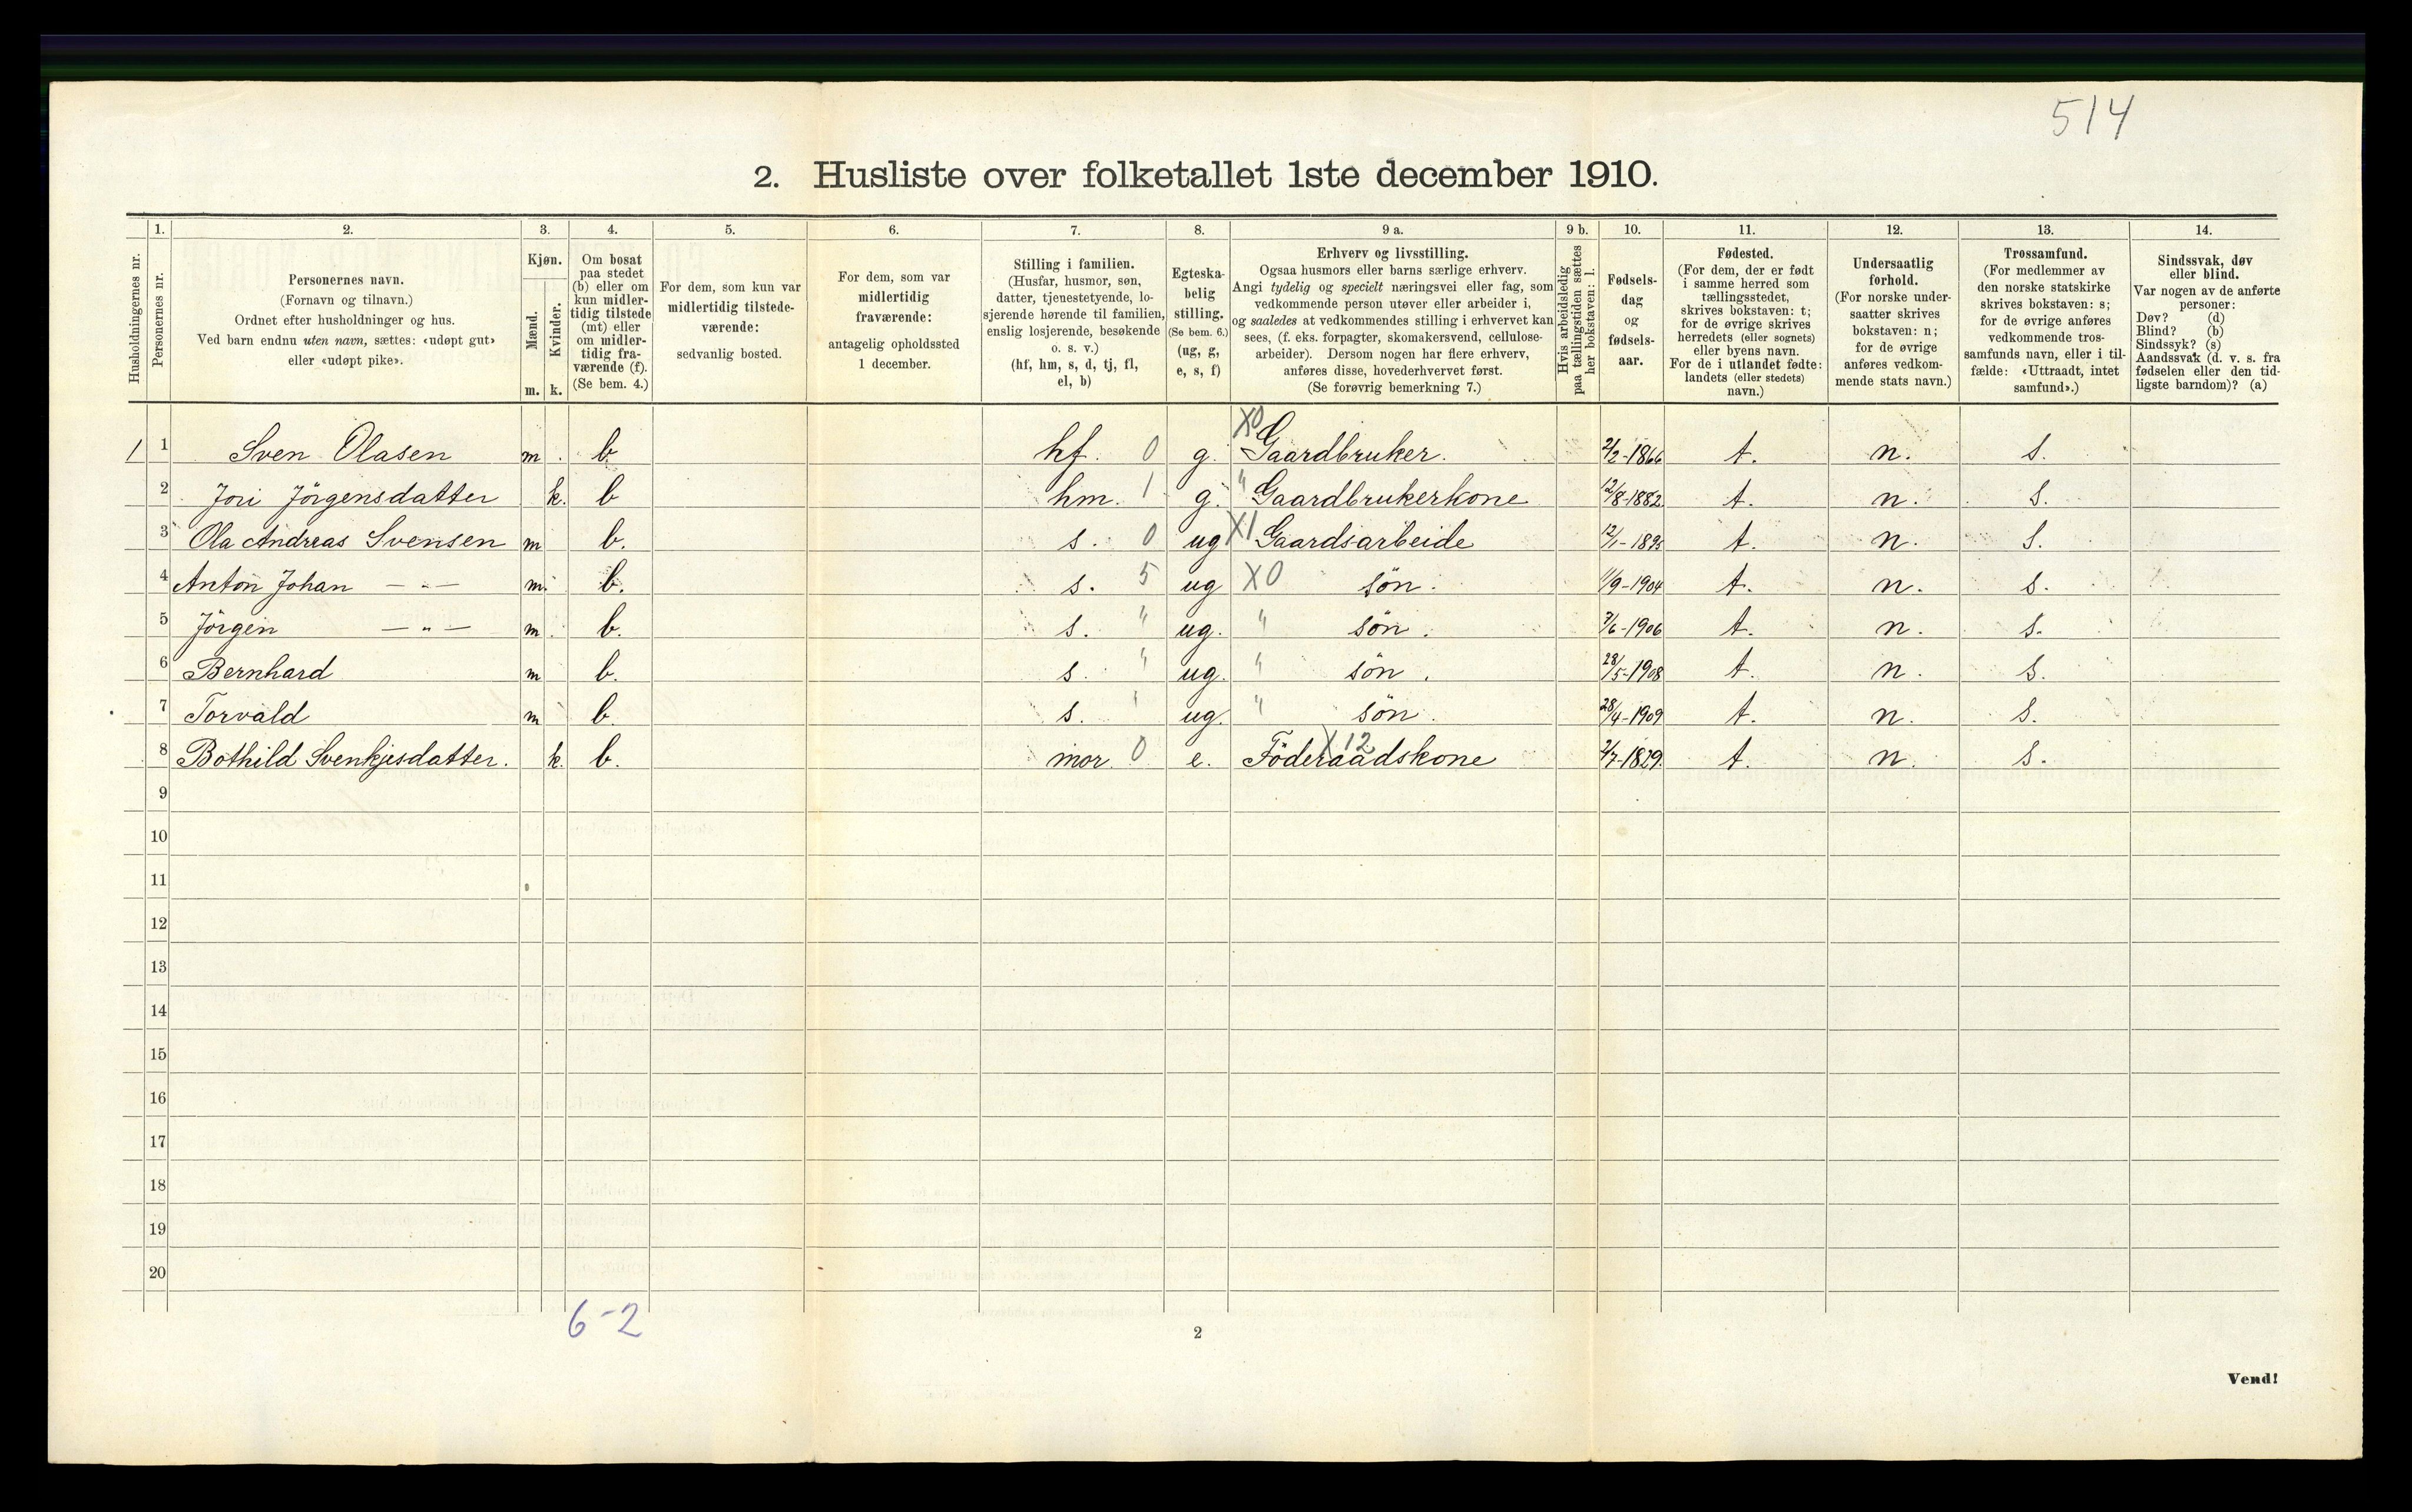 514
2. Husliste over folketallet 1ste december 1910.
Husholdningernes nr.
1.
Personernes nr.
2.
Personernes navn.
(Fornavn og tilnavn.)
Ordnet efter husholdninger og hus.
Ved barn endnu uten navn, sættes: «udøpt gut»
eller «udøpt pike».
3.
Kjøn.
Mænd.
Kvinder.
m. k.
4.
Om bosat
paa stedet
(b) eller om
kun midler-
tidig tilstede
(mt) eller
om midler-
tidig fra-
værende (f).
(Se bem. 4.)
5.
For dem, som kun var
midlertidig tilstede-
værende:
sedvanlig bosted.
6.
For dem, som var
midlertidig
fraværende:
antagelig opholdssted
1 december.
7.
Stilling i familien.
(Husfar, husmor, søn,
datter, tjenestetyende, lo-
sjerende hørende til familien,
enslig losjerende, besøkende
o. s. v.)
(hf, hm, s, d, tj, fl,
el, b)
8.
Egteska-
belig
stilling.
(Se bem. 6.)
(ug, g,
e, s, f)
9 a.
Erhverv og livsstilling.
Ogsaa husmors eller barns særlige erhverv.
Angi tydelig og specielt næringsvei eller fag, som
vedkommende person utøver eller arbeider i,
og saaledes at vedkommendes stilling i erhvervet kan
sees, (f. eks. forpagter, skomakersvend, cellulose-
arbeider). Dersom nogen har flere erhverv,
anføres disse, hovederhvervet først.
(Se forøvrig bemerkning 7.)
9 b.
Hvis arbeidsledig
paa tællingstiden sættes
her bokstaven: l.
10.
Fødsels-
dag
og
fødsels-
aar.
11.
Fødested.
(For dem, der er født
i samme herred som
tællingsstedet,
skrives bokstaven: t;
for de øvrige skrives
herredets (eller sognets)
eller byens navn.
For de i utlandet fødte:
landets (eller stedets)
navn.)
12.
Undersaatlig
forhold.
(For norske under-
saatter skrives
bokstaven: n;
for de øvrige
anføres vedkom-
mende stats navn.)
13.
Trossamfund.
(For medlemmer av
den norske statskirke
skrives bokstaven: s;
for de øvrige anføres
vedkommende tros-
samfunds navn, eller i til-
fælde: «Uttraadt, intet
samfund».)
14.
Sindssvak, døv
eller blind.
Var nogen av de anførte
personer:
Døv? (d)
Blind? (b)
Sindssyk? (s)
Aandssvak (d. v. s. fra
fødselen eller den tid-
ligste barndom)? (a)
1 1 Sven Olasen m. b. hf. 0 g. X0 Gaardbruker. 2/2-1866 t. n. s.
2 Jori Jörgensdatter k. b hm. 1 g. " Gaardbrukerkone 12/8-1882 t. n. s.
3 Ola Andreas Svensen m b. s. 0 ug X1 Gaardsarbeide 12/1-1895 t. n. s.
4 Anton Johan — " — m. b. s. 5 ug X0 sön. 11/9-1904 t. n. s.
5 Jörgen — " — m. b. s. " ug. " sön. 7/6-1906 t. n. s.
6 Bernhard m b. s. " ug. " sön. 28/5-1908 t. n. s.
7 Torvald m b. s. " ug. " sön. 28/4-1909 t. n. s.
8 Bothild Svenkjisdatter. k. b. mor. 0 e. X12 Föderaadskone 2/7-1829. t. n. s.
9
10
11
12
13
14
15
16
17
18
19
20
6-2
2
Vend!